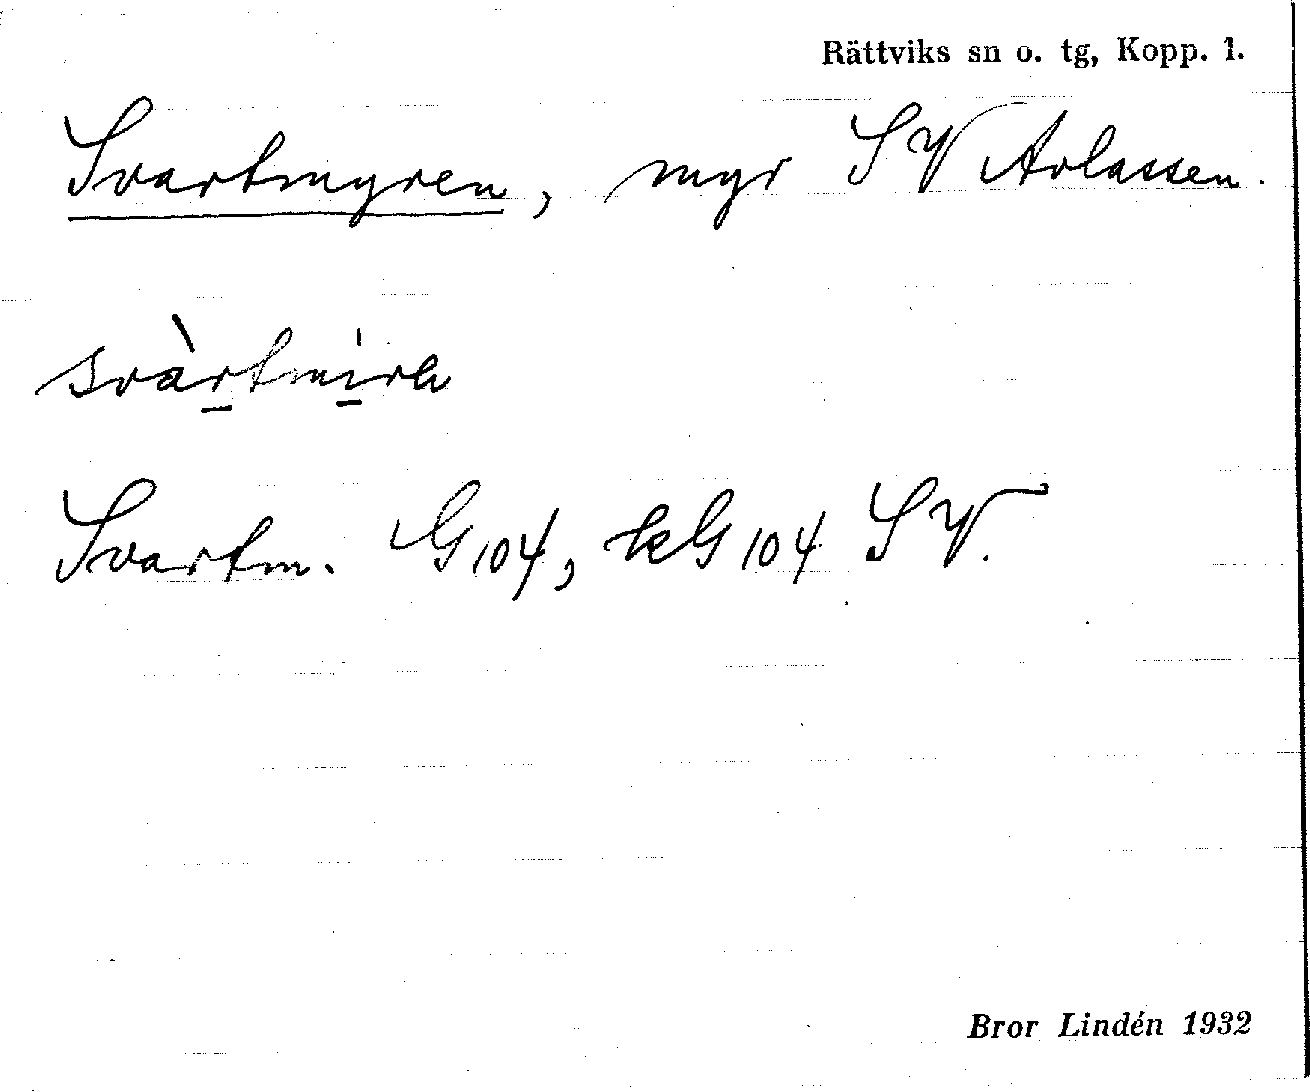 Rättviks sn o. tg, Kopp. l.
Svartmyren, myr SV Arlassen.
svàrtmirh
Svartm. G104, kG104 SV.
Bror Lindén 1932